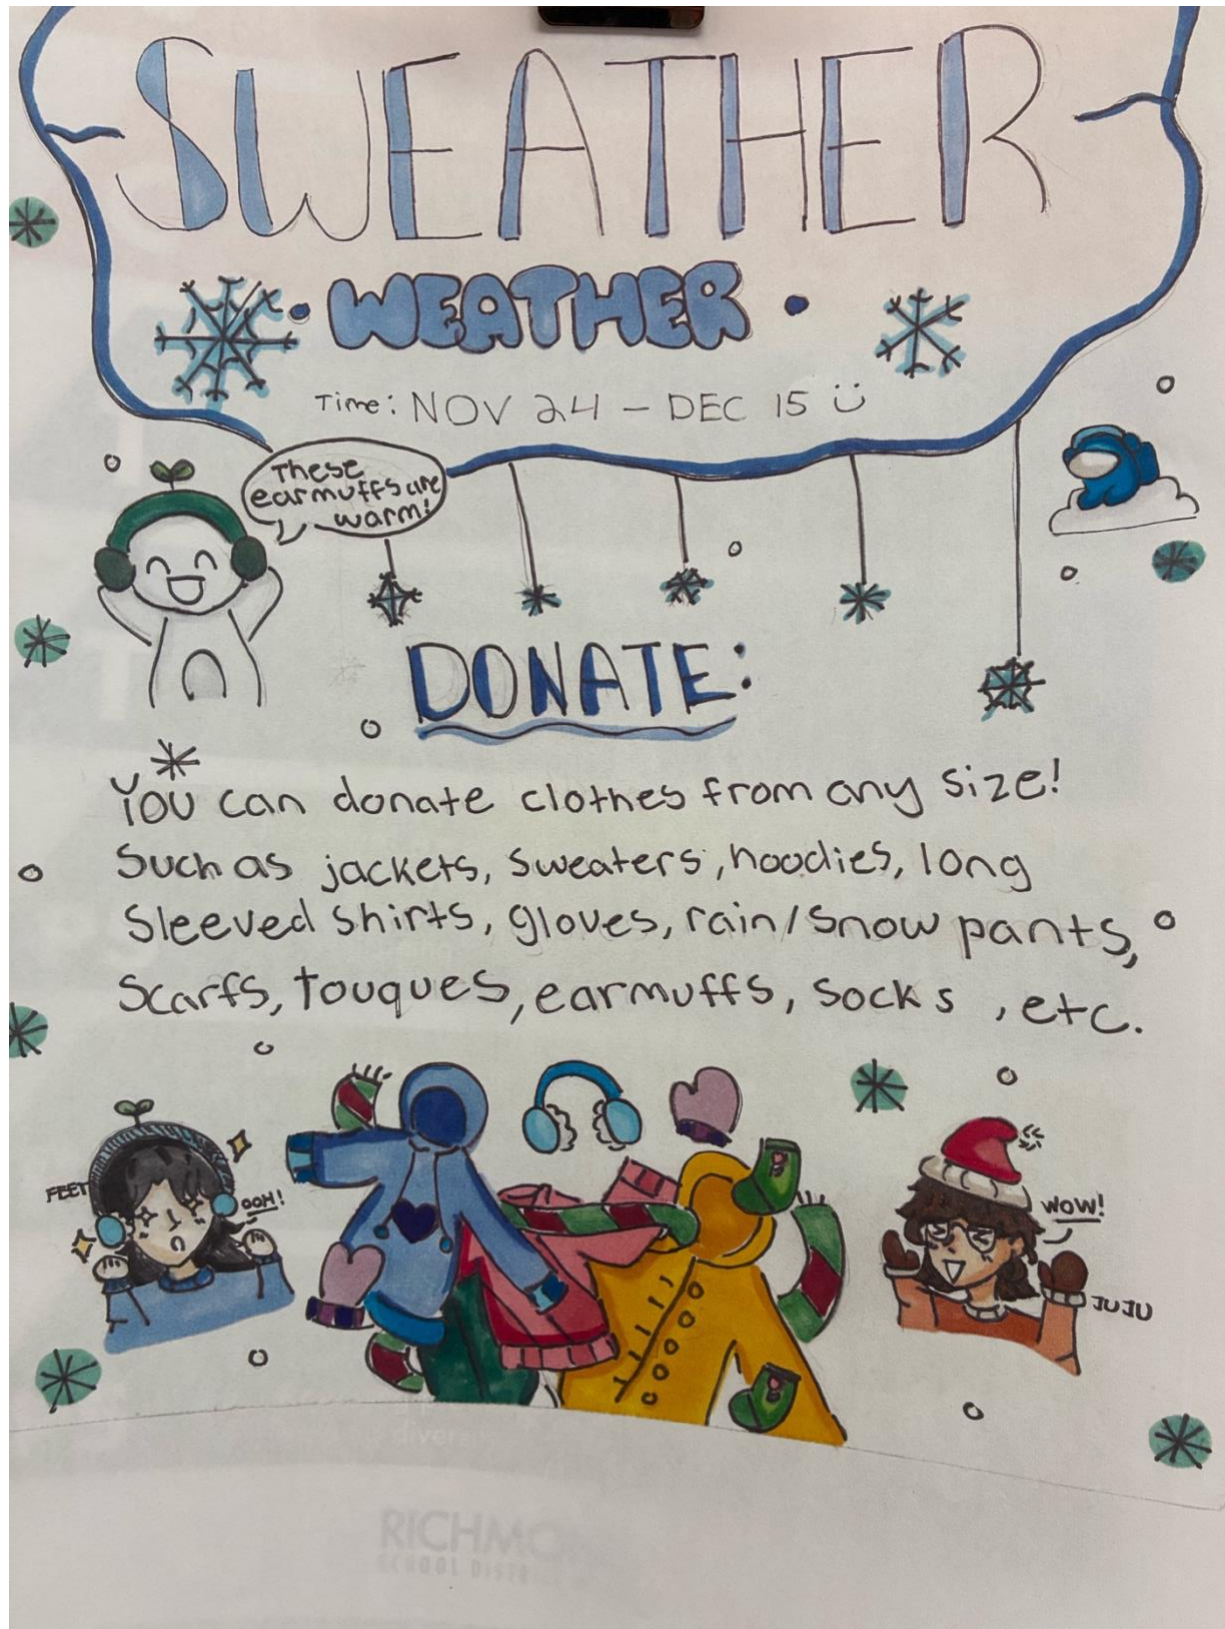 SWEATHER
WEATHER
Time: NOV 24 - DEC 15 :)
These
earmuffs are
warm!
DONATE:
You can donate clothes from any size!
Such as jackets, sweaters, hoodies, long
Sleeved shirts, gloves, rain/snow pants,
Scarfs, touques, earmuffs, socks, etc.
FEET
OOH!
WOW!
JUJU
RICHMO
SCHOOL DISTR